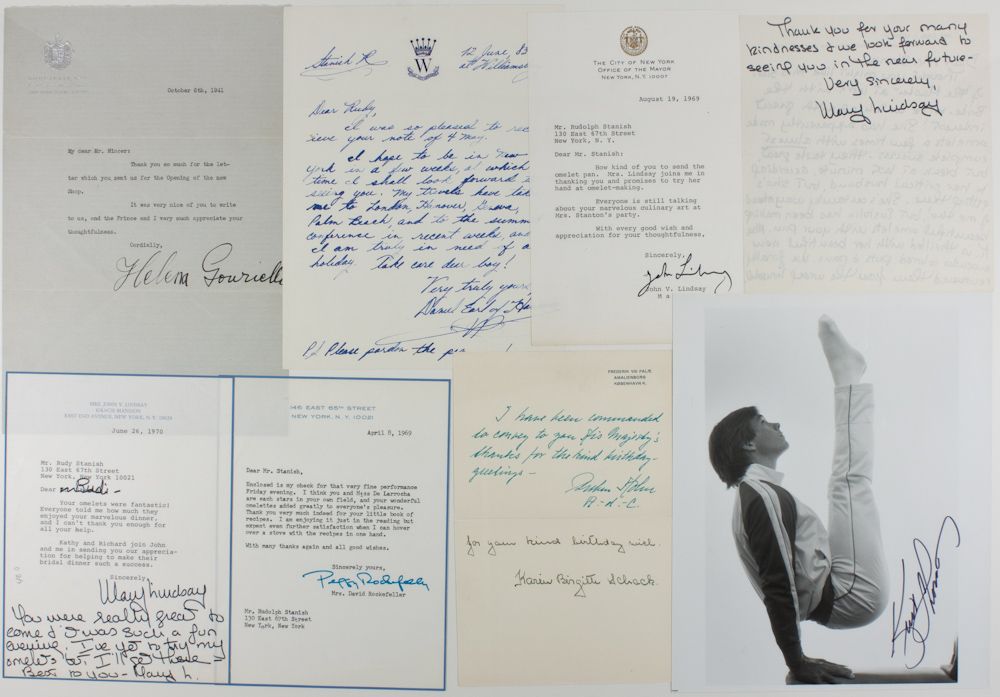 October 6th, 1941
My dear Mr. Mincer:
Thank you so much for the let-
ter which you sent us for the Opening of the new
Shop.
It was very nice of you to write
to us, and the Prince and I very much appreciate your
thoughtfulness.
Cordially,
Helena Gourielli
12 June, 83
W
Dear Rudy,
I was so pleased to rec
ieve your note of 4 May.
I hope to be in New
York in a few weeks, at which
time I shall look forward
seeing you. My travels have
me to London, Hanover, Geneva,
Palm Beach, and to the summ
conference in recent weeks and
I am truly in need of a
holiday. Take care dear boy!
Very truly yours,
Daniel Earl of
P.S. Please pardon the
THE CITY OF NEW YORK
OFFICE OF THE MAYOR
NEW YORK, N.Y. 10007
August 19, 1969
Mr. Rudolph Stanish
130 East 67th Street
New York, N. Y.
Dear Mr. Stanish:
How kind of you to send the
omelet pan. Mrs. Lindsay joins me in
thanking you and promises to try her
hand at omelet-making.
Everyone is still talking
about your marvelous culinary art at
Mrs. Stanton's party.
With every good wish and
appreciation for your thoughtfulness.
Sincerely,
John Lindsay
John V. Lindsay
M a
Thank you for your many
kindnesses & we look forward to
seeing you in the near future-
Very sincerely,
Mary Lindsay
MRS. JOHN V. LINDSAY
GRACIE MANSION
EAST END AVENUE, NEW YORK, N.Y. 10028
June 26, 1970
Mr. Rudy Stanish
130 East 67th Street
New York, New York 10021
Dear Rudi-
Your omelets were fantastic!
Everyone told me how much they
enjoyed your marvelous dinner,
and I can't thank you enough for
all your help.
Kathy and Richard join John
and me in sending you our apprecia-
tion for helping to make their
bridal dinner such a success.
Sincerely
Mary Lindsay
You were really great to
come & it was such a fun
evening. I've yet to try my
omelets but I'll get there
Best to you- Mary L.
146 EAST 65TH STREET
NEW YORK, N.Y. 10021
April 8, 1969
Dear Mr. Stanish,
Enclosed is my check for that very fine performance
Friday evening. I think you and Miss De Larrocha
are each stars in your own field, and your wonderful
omelettes added greatly to everyone's pleasure.
Thank you very much indeed for your little book of
recipes. I am enjoying it just in the reading but
expect even further satisfaction when I can hover
over a stove with the recipes in one hand.
With many thanks again and all good wishes.
Sincerely yours,
Peggy Rockefeller
Mrs. David Rockefeller
Mr. Rudolph Stanish
130 East 67th Street
New York, New York
FREDERIK VIII PALÆ
AMALIENBORG
KØBENHAVN K.
I have been commanded
to convey to you His Majesty's
thanks for the kind birthday-
greetings -
A-d-C.
for your kind birthday wish.
Karin Birgitte Schack.
Kurt Thomas